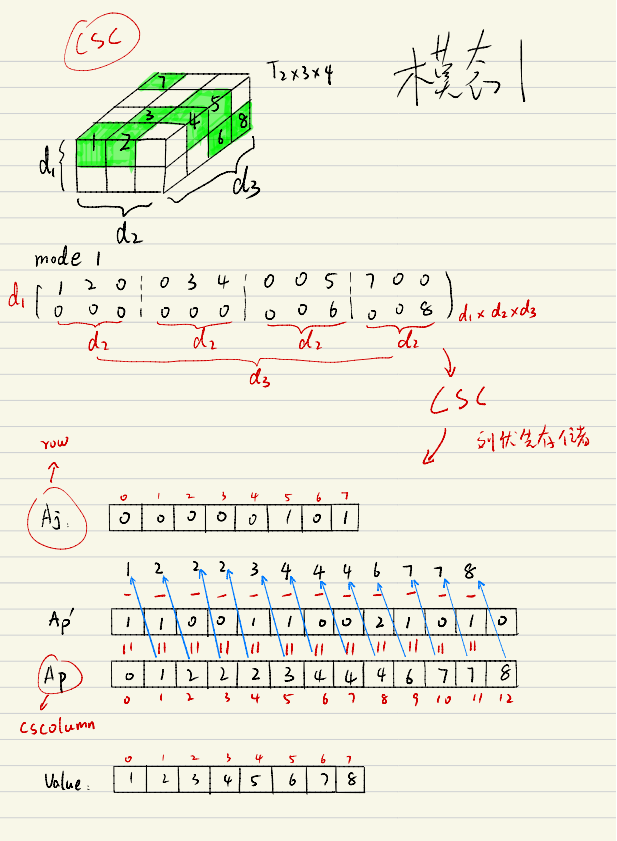 CSC
模态1
T2×3×4
7
5
3 4 8
1 2 6
d1
d3
d2
mode 1
d1 1 2 0 0 3 4 0 0 5 7 0 0
0 0 0 0 0 0 0 0 6 0 0 8 d1×d2×d3
d2 d2 d2 d2
d3
CSC
列优先存储
row
0 1 2 3 4 5 6 7
Aj: 0 0 0 0 0 1 0 1
1 2 2 2 3 4 4 4 6 7 7 8
- - - - - - - - - - - -
Ap' 1 1 0 0 1 1 0 0 2 1 0 1 0
= = = = = = = = = = = =
Ap 0 1 2 2 2 3 4 4 4 6 7 7 8
0 1 2 3 4 5 6 7 8 9 10 11 12
cscolumn
0 1 2 3 4 5 6 7
Value: 1 2 3 4 5 6 7 8